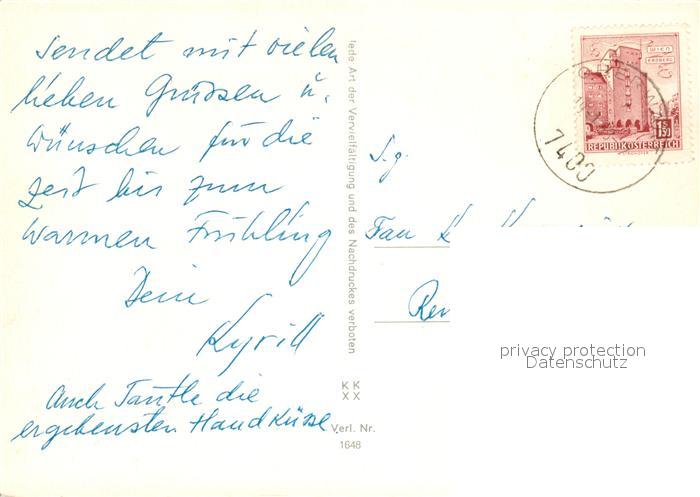 Sendet mit vielen
lieben Grüssen u.
Wünschen für die
Zeit bis zum
warmen Frühling
Dein
Kyrill
Auch Tantle die
ergebensten Handküsse
Jede Art der Vervielfältigung und des Nachdruckes verboten
K K
X X
Verl. Nr.
1648
WIEN
ERDBERG
1.50
REPUBLIK ÖSTERREICH
7400
S.g.
privacy protection
Datenschutz